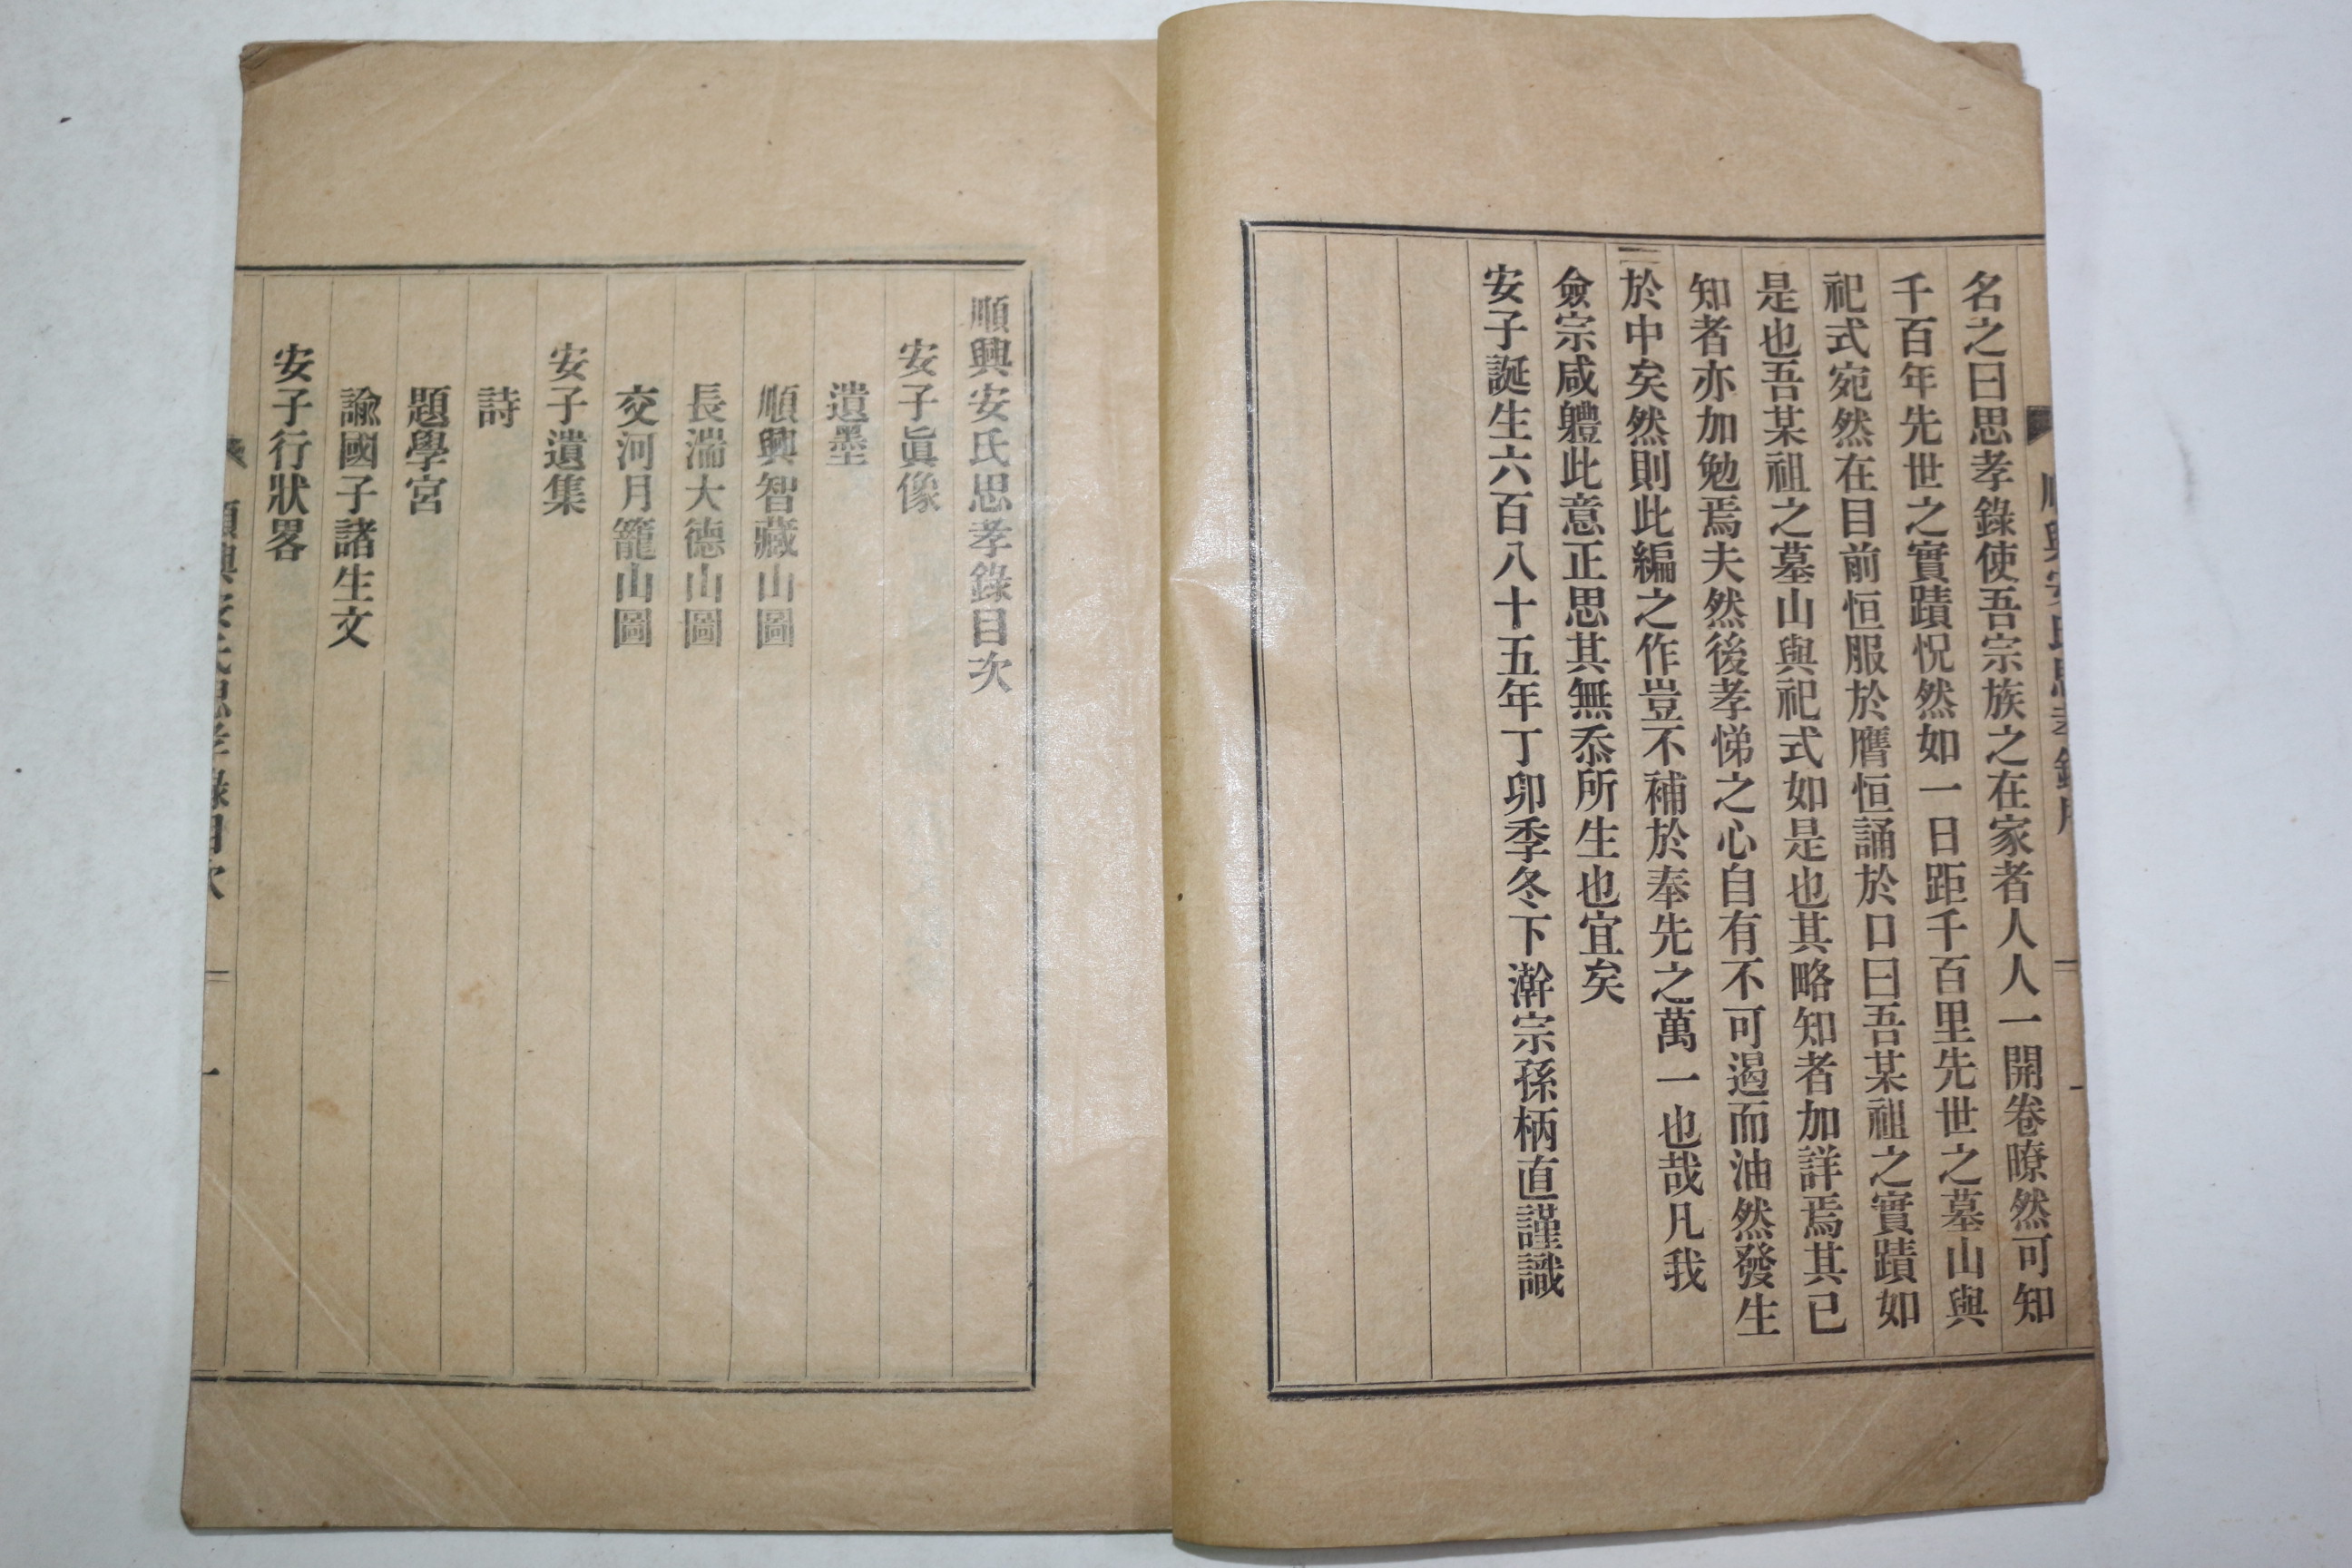 名之曰思孝錄使吾宗族之在家者人人一開卷瞭然可知
千百年先世之實蹟怳然如一日距千百里先世之墓山與
祀式宛然在目前恒服於膺恒誦於口曰吾某祖之實蹟如
是也吾某祖之墓山與祀式如是也其略知者加詳焉其已
知者亦加勉焉夫然後孝悌之心自有不可遏而油然發生
於中矣然則此編之作豈不補於奉先之萬一也哉凡我
僉宗咸軆此意正思其無忝所生也宜矣
安子誕生六百八十五年丁卯季冬下澣宗孫柄直謹識
順興安氏思孝錄目次
安子眞像
遺墨
順興智藏山圖
長湍大德山圖
交河月籠山圖
安子遺集
詩
題學宮
諭國子諸生文
安子行狀畧
順興安氏思孝錄目次
一